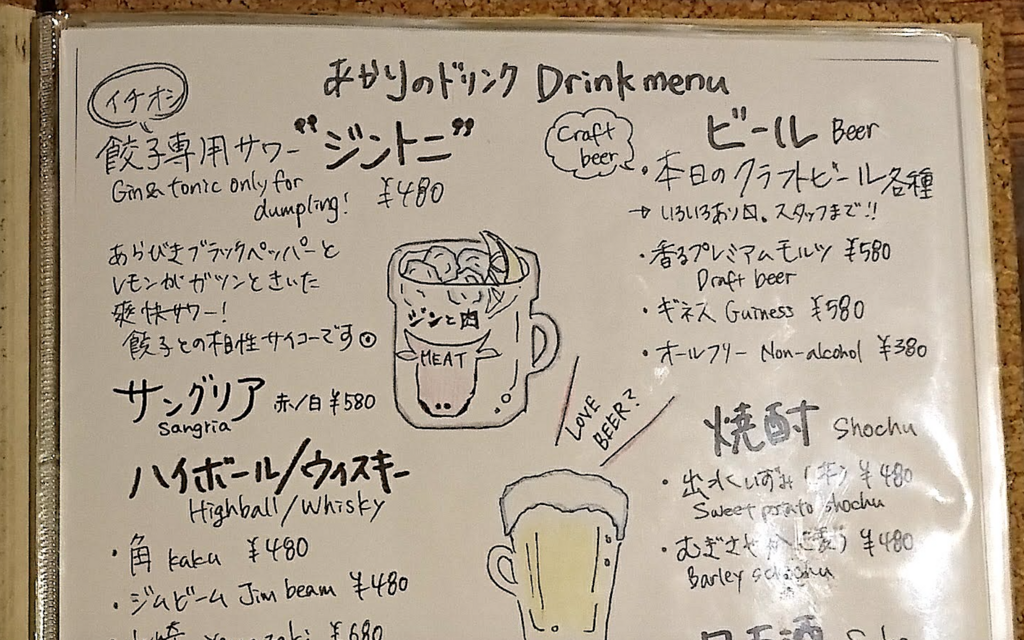 あかりのドリンク Drink menu
イチオシ
餃子専用サワー "ジントニ"
Gin & tonic only for
dumpling! ¥480
あらびきブラックペッパーと
レモンがガツンときいた
爽快サワー!
餃子との相性サイコーです
ジンと肉
MEAT
サングリア 赤/白 ¥580
Sangria
ハイボール/ウィスキー
Highball/Whisky
・角 kaku ¥480
・ジムビーム Jim beam ¥480
¥680
Craft
beer
ビール Beer
・本日のクラフトビール各種
→いろいろあり〼。スタッフまで!!
・香るプレミアムモルツ ¥580
Draft beer
・ギネス Guiness ¥580
・オールフリー Non-alcohol ¥380
LOVE
BEER?
焼酎 Shochu
・出水 いずみ (芋) ¥480
Sweet potato shochu
・むぎ ¥480
Barley